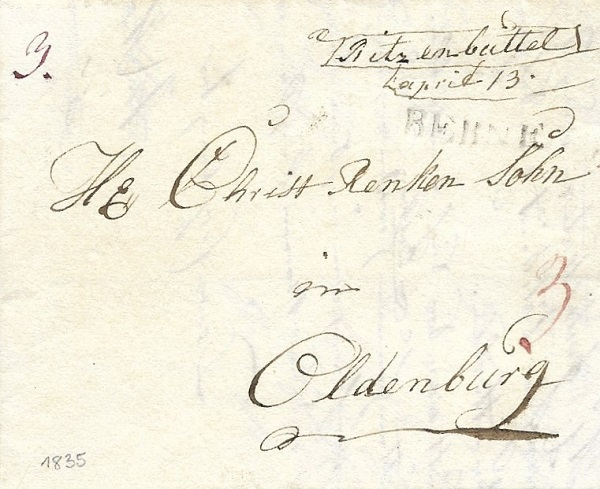 3.
Ritzenbüttel
april 13.
BERNE
He Christ Renken Sohn
in
3
Oldenburg
1835